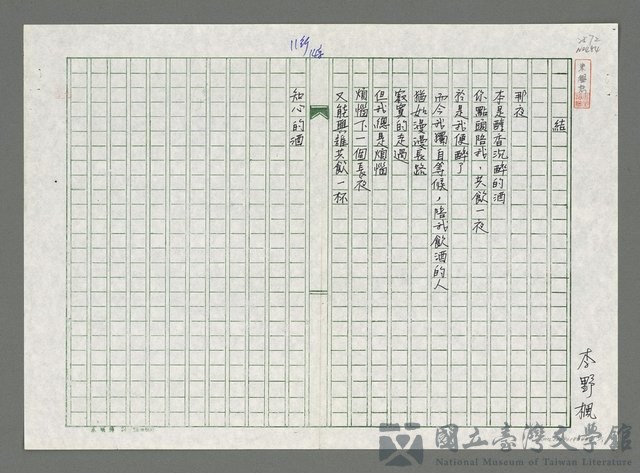 結
那夜
本是醇香沉醉的酒
你點頭陪我，共飲一夜
於是我便醉了
而今我獨自等候，陪我飲酒的人
猶如漫漫長路
寂寞的走過
但我總是煩惱
煩惱下一個長夜
又能與誰共飲一杯
知心的酒
李野楓
11行
14字
國立臺灣文學館
National Museum of Taiwan Literature